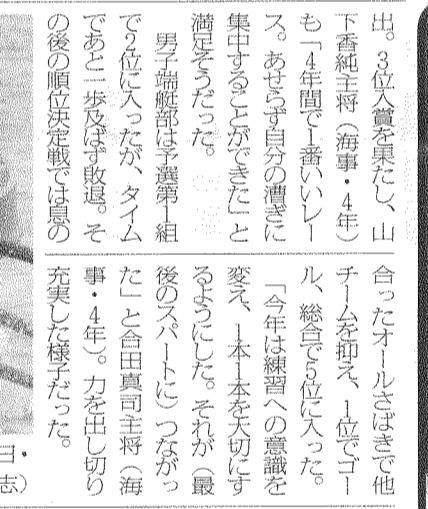 出。3位入賞を果たし、山
下香純主将（海事・4年）
も「4年間で1番いいレー
ス。あせらず自分の漕ぎに
集中することができた」と
満足そうだった。
男子端艇部は予選第1組
で2位に入ったが、タイム
であと一歩及ばず敗退。そ
の後の順位決定戦では息の
合ったオールさばきで他
チームを抑え、1位でゴー
ル、総合で5位に入った。
「今年は練習への意識を
変え、1本1本を大切にす
るようにした。それが（最
後のスパートに）つながっ
た」と合田真司主将（海
事・4年）。力を出し切り
充実した様子だった。
日・
志）